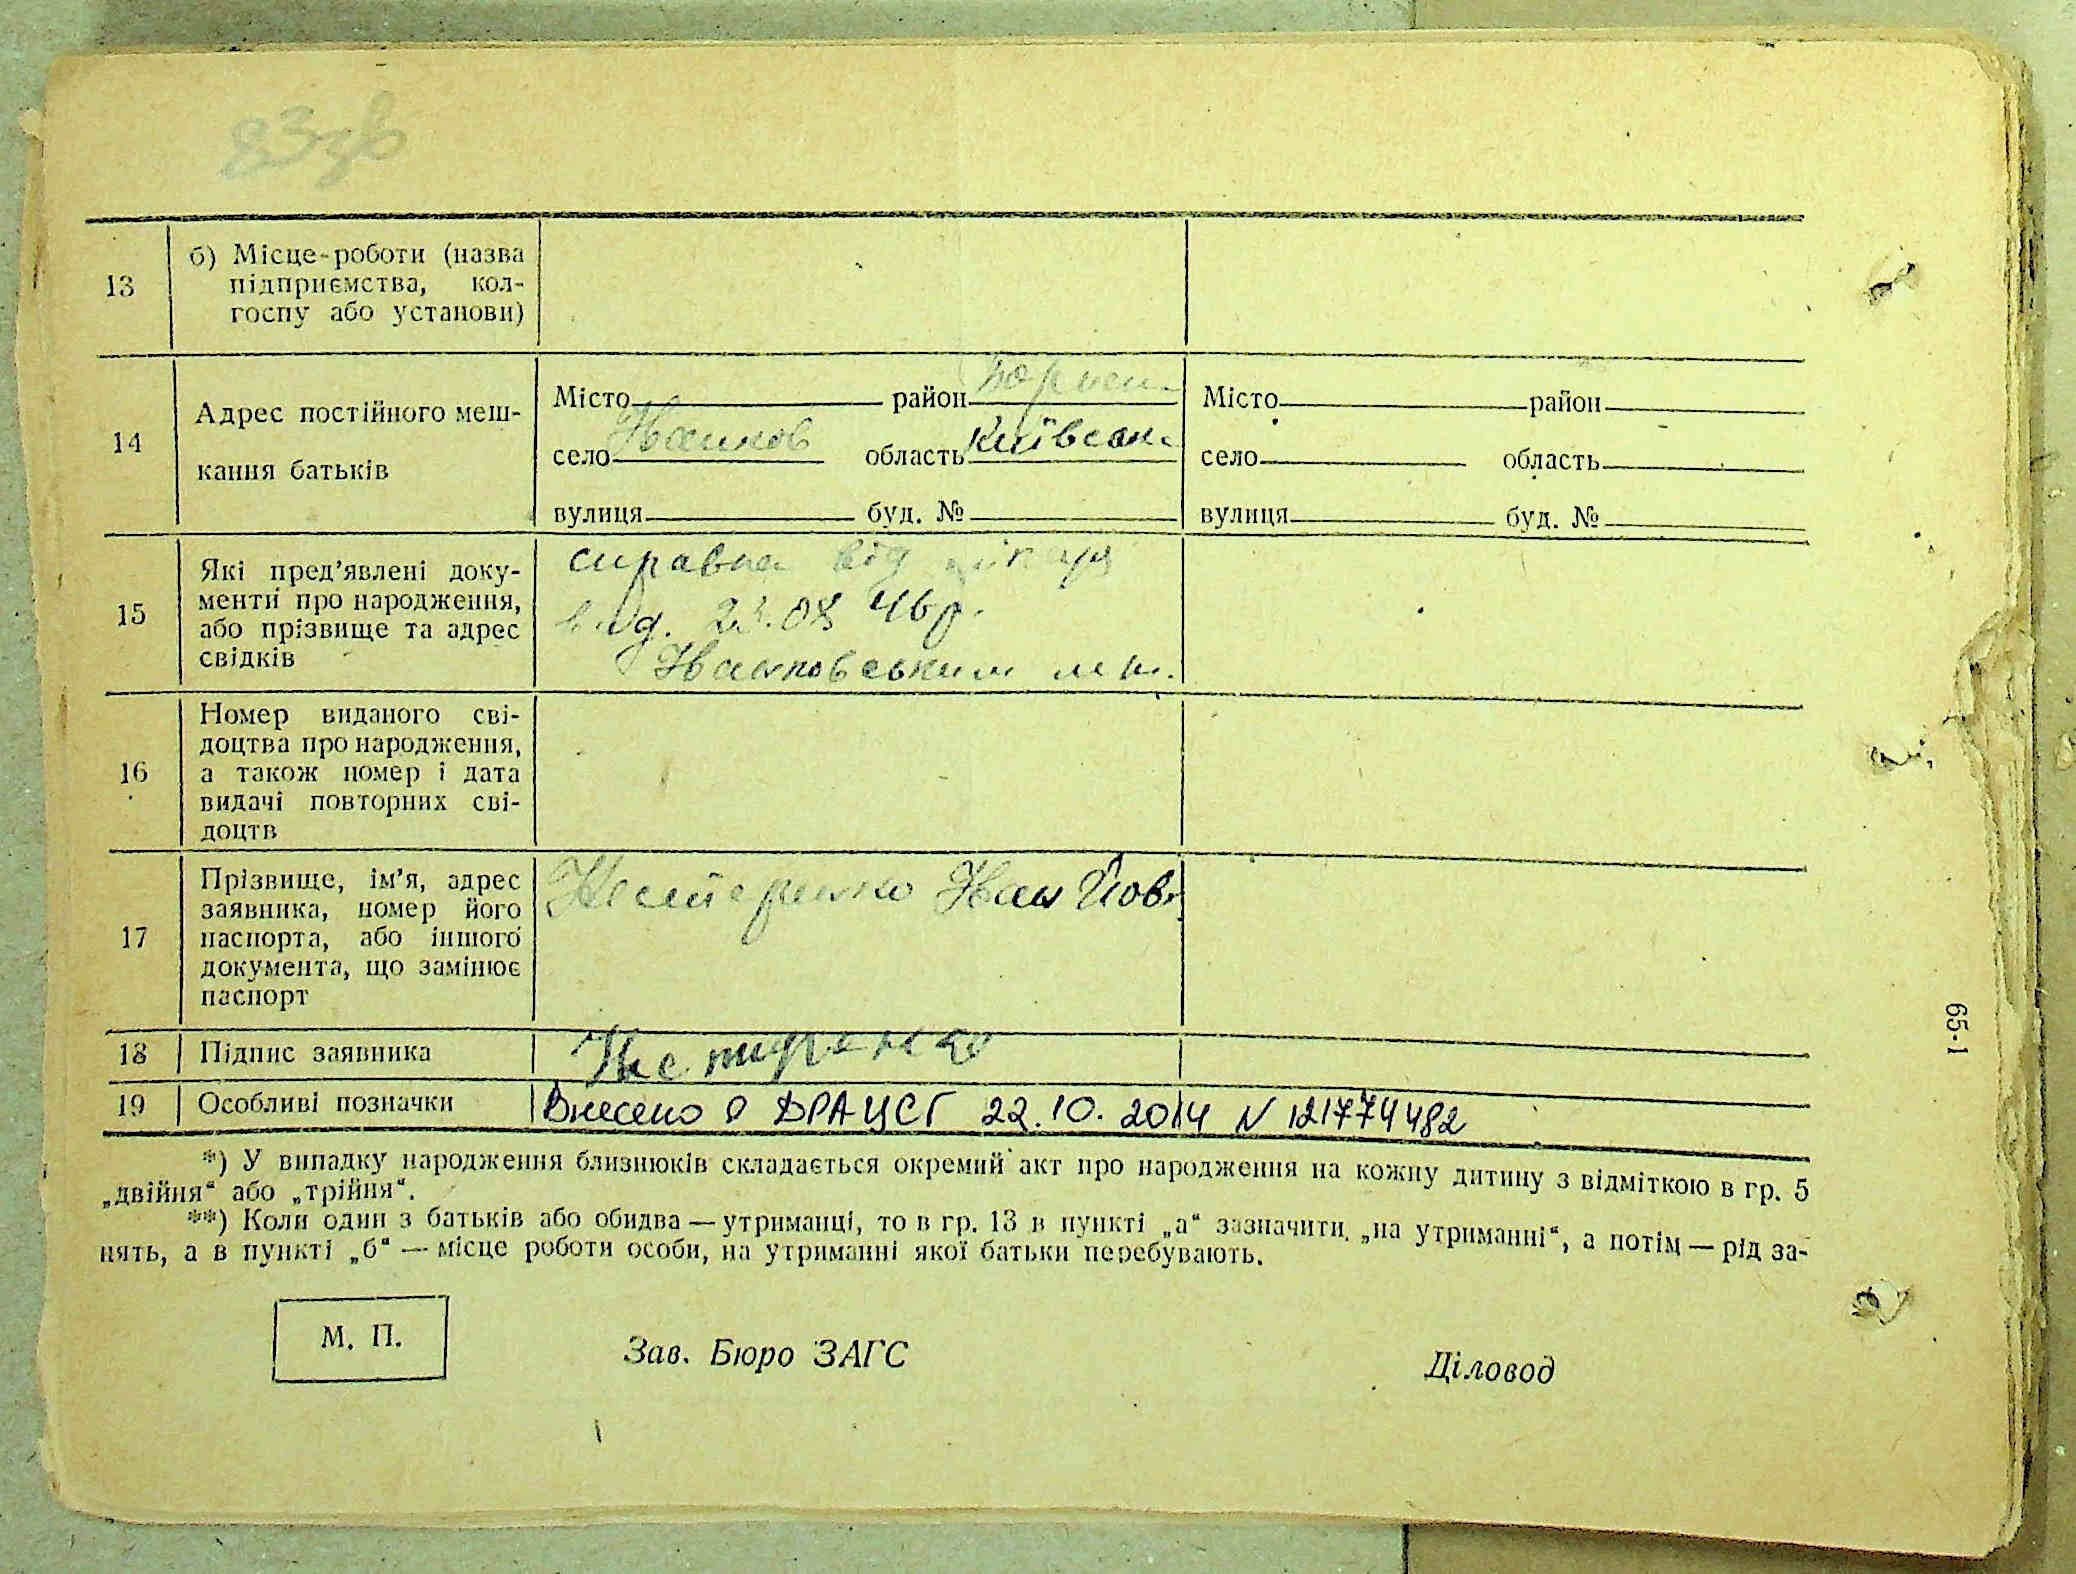 83зв
13
б) Місце роботи (назва
підприємства, кол-
госпу або установи)
14
Адрес постійного меш-
кання батьків
Місто район
село Іванков область Київськ.
вулиця буд. №
Місто район
село область
вулиця буд. №
15
Які пред’явлені доку-
менти про народження,
або прізвище та адрес
свідків
справка від
вид. 08 46р.
Іванковським
16
Номер виданого сві-
доцтва про народження,
а також номер і дата
видачі повторних сві-
доцтв
17
Прізвище, ім’я, адрес
заявника, номер його
паспорта, або іншого
документа, що замінює
паспорт
Нестеренко Іван Йов.
18 Підпис заявника
Нестеренко
19 Особливі позначки Внесено в ДРАЦСГ 22.10.2014 N 121774482
*) У випадку народження близнюків складається окремий акт про народження на кожну дитину з відміткою в гр. 5
„двійня“ або „трійня“.
**) Коли один з батьків або обидва — утриманці, то в гр. 13 в пункті „а“ зазначити „на утриманні“, а потім — рід за-
нять, а в пункті „б“ — місце роботи особи, на утриманні якої батьки перебувають.
М. П.
Зав. Бюро ЗАГС
Діловод
65-1